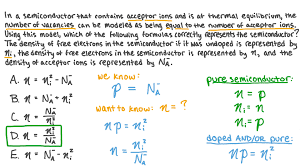 In a semiconductor that contains acceptor ions and is at thermal equilibrium, the
number of vacancies can be modeled as being equal to the number of acceptor ions.
Using this model, which of the following formulas correctly represents the semiconductor?
The density of free electrons in the semiconductor if it was undoped is represented by
nᵢ, the density of free electrons in the semiconductor is represented by n, and the density
of acceptor ions is represented by N_A⁻.
A. n = nᵢ² − N_A⁻
B. n = N_A⁻ ÷ nᵢ²
C. n = N_A⁻ / nᵢ²
D. n = nᵢ² / N_A⁻
we know:
p = N_A⁻
want to know: n = ?
np = nᵢ²
n = nᵢ² / N_A⁻
pure semiconductor:
n = p
nᵢ = n
nᵢ = p
doped AND/OR pure:
np = nᵢ²